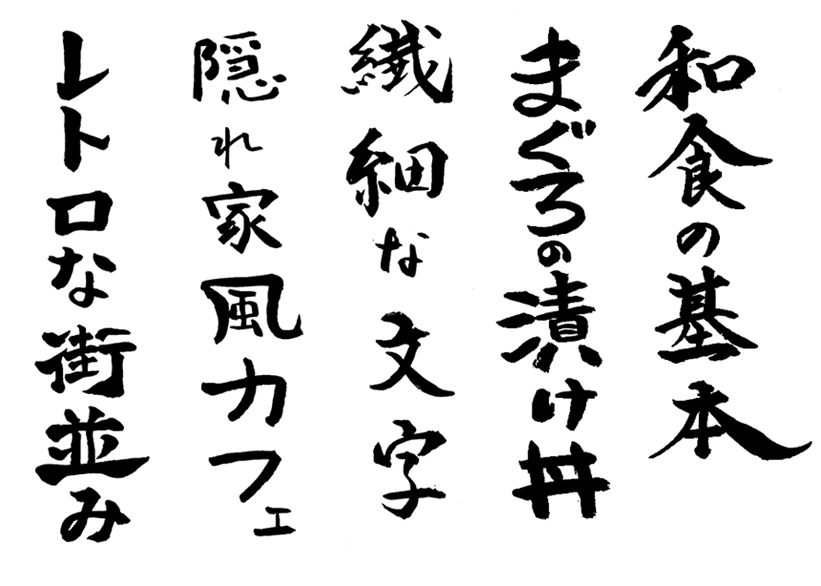 和食の基本
まぐろの漬け丼
繊細な文字
隠れ家風カフェ
レトロな街並み